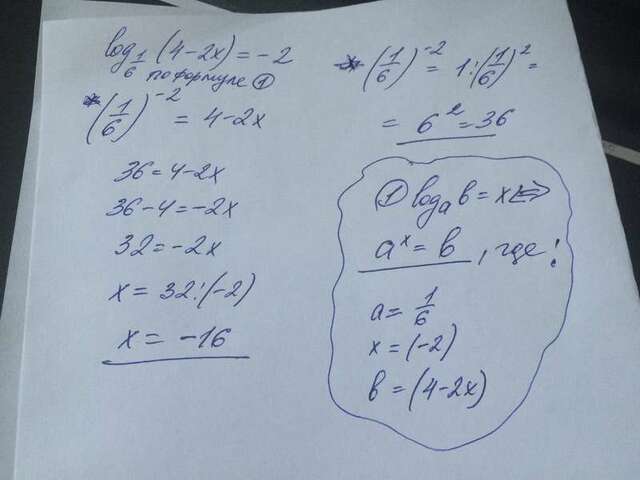 log_{1/6} (4-2x) = -2
по формуле ①
* (1/6)^{-2} = 4-2x
36 = 4-2x
36-4 = -2x
32 = -2x
x = 32:(-2)
x = -16
* (1/6)^{-2} = 1:(1/6)^2 =
= 6^2 = 36
① log_a b = x ⇔
a^x = b, где:
a = 1/6
x = (-2)
b = (4-2x)